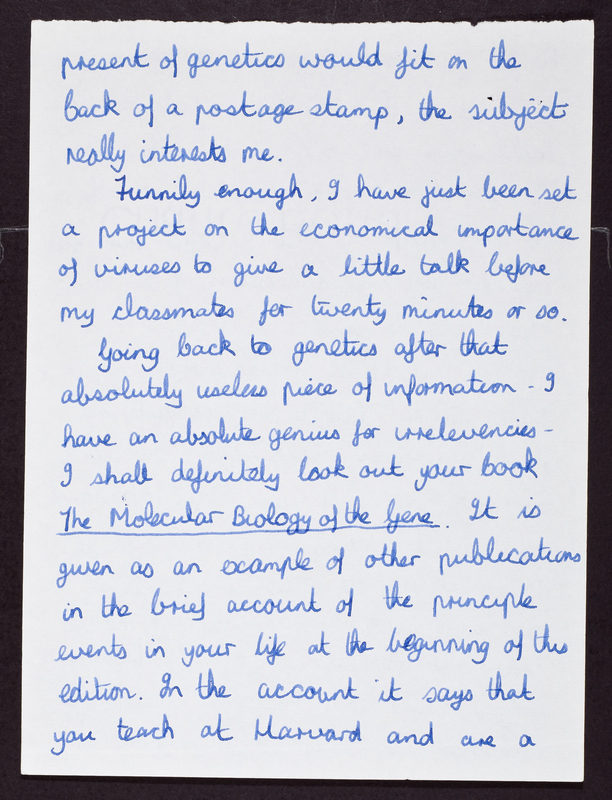 present of genetics would fit on the
back of a postage stamp, the subject
really interests me.
Funnily enough, I have just been set
a project on the economical importance
of viruses to give a little talk before
my classmates for twenty minutes or so.
Going back to genetics after that
absolutely useless piece of information - I
have an absolute genius for irrelevencies -
I shall definitely look out your book
The Molecular Biology of the Gene. It is
given as an example of other publications
in the brief account of the principle
events in your life at the beginning of this
edition. In the account it says that
you teach at Harvard and are a